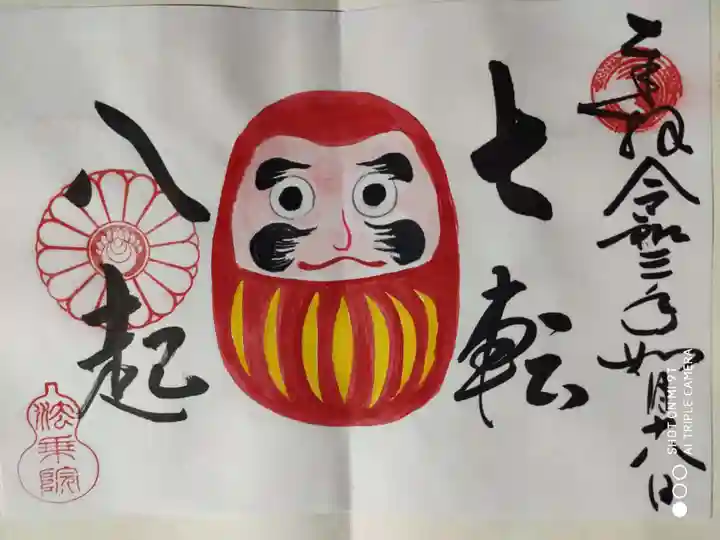 奉拝 令和三年如月十八日
七転
八起
法乗院
SHOT ON MI 9T
AI TRIPLE CAMERA